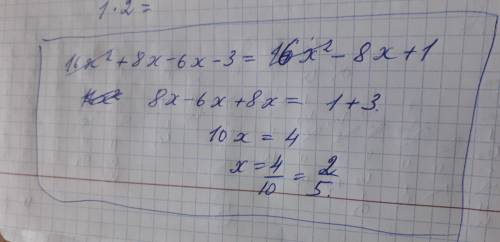 1·2=
16x²+8x-6x-3=16x²-8x+1
8x-6x+8x= 1+3.
10x=4
x=4/10=2/5.